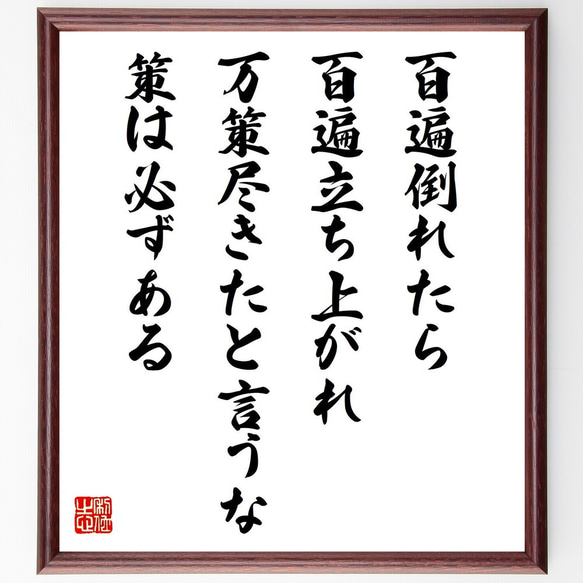 百遍倒れたら
百遍立ち上がれ
万策尽きたと言うな
策は必ずある